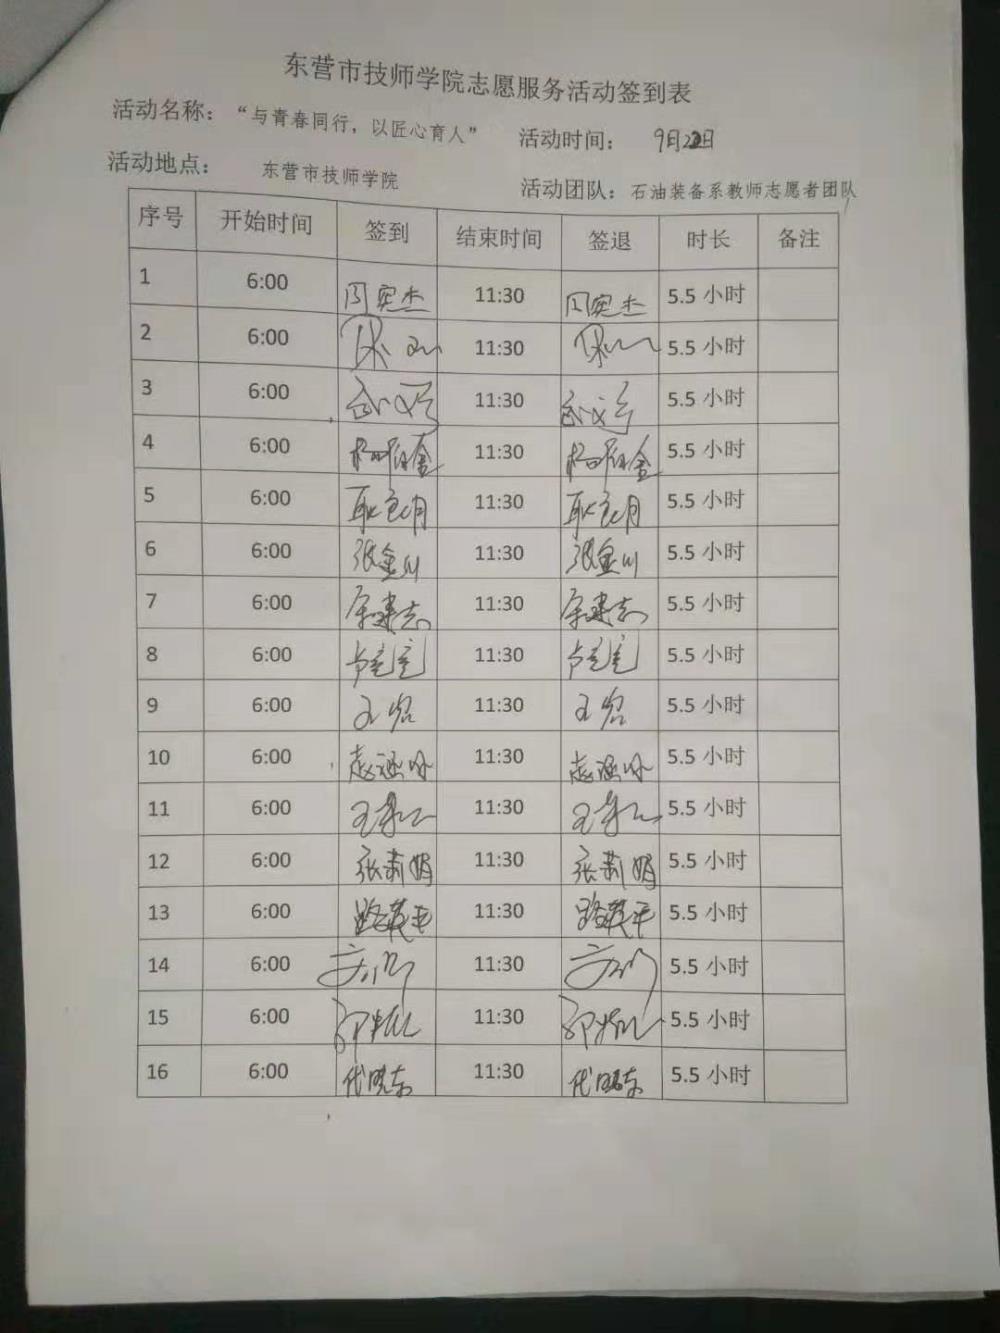 东营市技师学院志愿服务活动签到表
活动名称：“与青春同行，以匠心育人” 活动时间： 9月22日
活动地点： 东营市技师学院 活动团队：石油装备系教师志愿者团队
序号 开始时间 签到 结束时间 签退 时长 备注
1 6:00 周实杰 11:30 周实杰 5.5 小时
2 6:00 11:30 5.5 小时
3 6:00 11:30 5.5 小时
4 6:00 11:30 5.5 小时
5 6:00 11:30 5.5 小时
6 6:00 张金川 11:30 张金川 5.5 小时
7 6:00 11:30 5.5 小时
8 6:00 11:30 5.5 小时
9 6:00 王岩 11:30 王岩 5.5 小时
10 6:00 11:30 5.5 小时
11 6:00 11:30 5.5 小时
12 6:00 张莉娟 11:30 张莉娟 5.5 小时
13 6:00 路英平 11:30 路英平 5.5 小时
14 6:00 11:30 5.5 小时
15 6:00 11:30 5.5 小时
16 6:00 代晓东 11:30 代晓东 5.5 小时